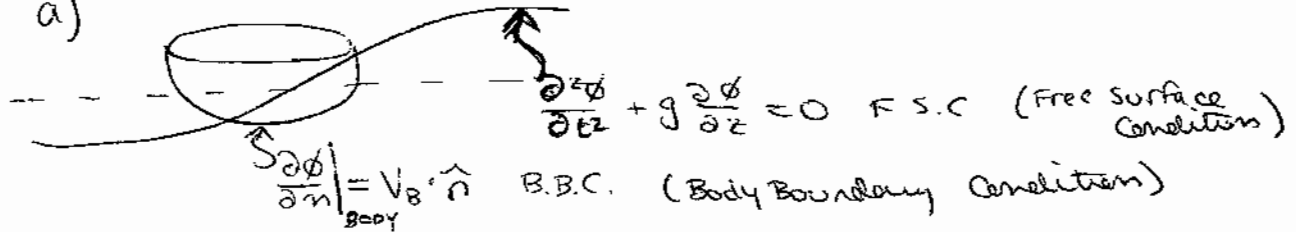 a)
∂²ϕ/∂t² + g ∂ϕ/∂z = 0 F.S.C (Free Surface Condition)
∂ϕ/∂n|BODY = VB · n̂ B.B.C. (Body Boundary Condition)